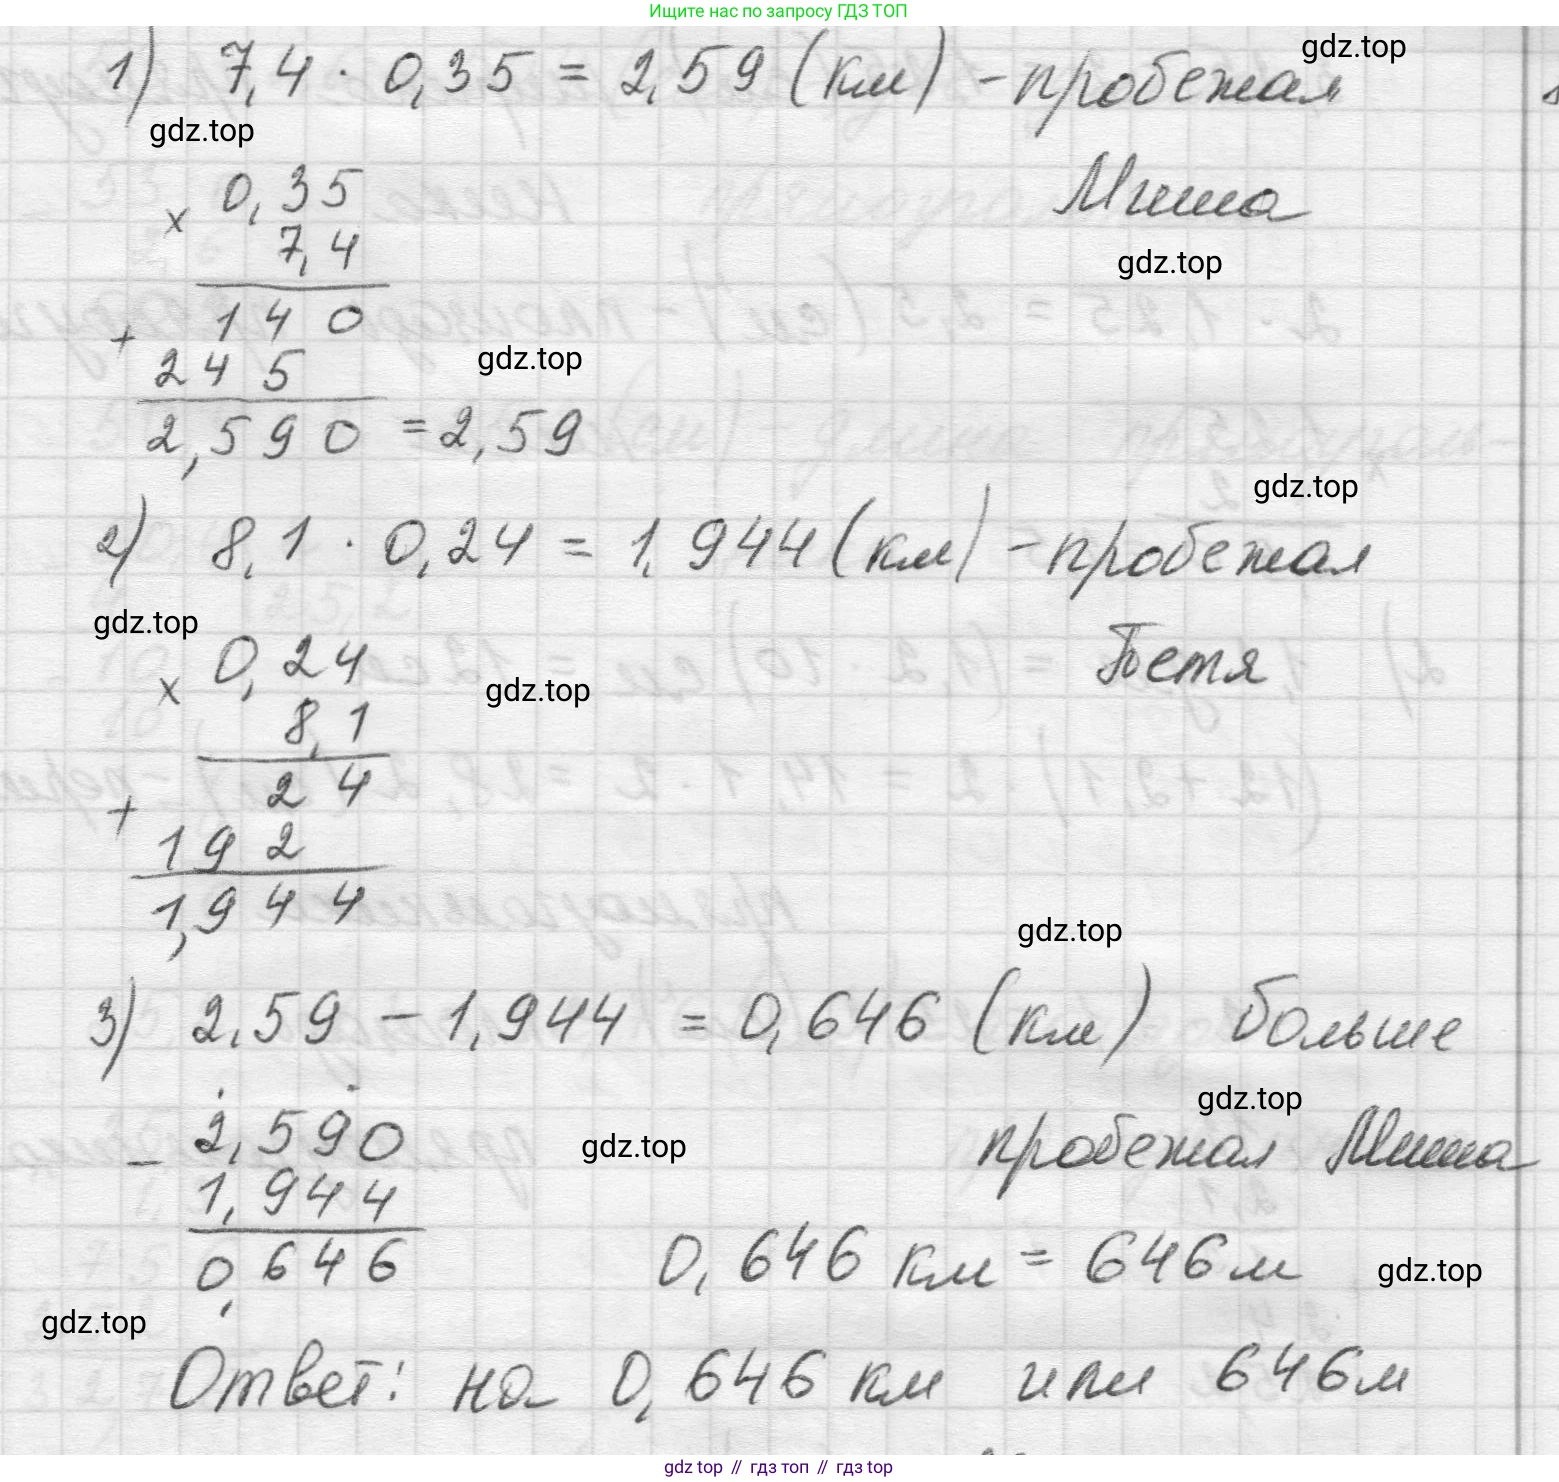 Ищите нас по запросу ГДЗ ТОП
1) 7,4 · 0,35 = 2,59 (км) - пробежал
gdz.top
gdz.top
Миша
× 0,35
7,4
gdz.top
+ 140
245
gdz.top
2,590 = 2,59
gdz.top
2) 8,1 · 0,24 = 1,944 (км) - пробежал
gdz.top
Петя
× 0,24
gdz.top
8,1
+ 24
192
1,944
gdz.top
3) 2,59 - 1,944 = 0,646 (км) больше
gdz.top
пробежал Миша
- 2,590
gdz.top
1,944
0,646
0,646 км = 646 м
gdz.top
gdz.top
Ответ: на 0,646 км или 646 м
gdz top // гдз топ // гдз top